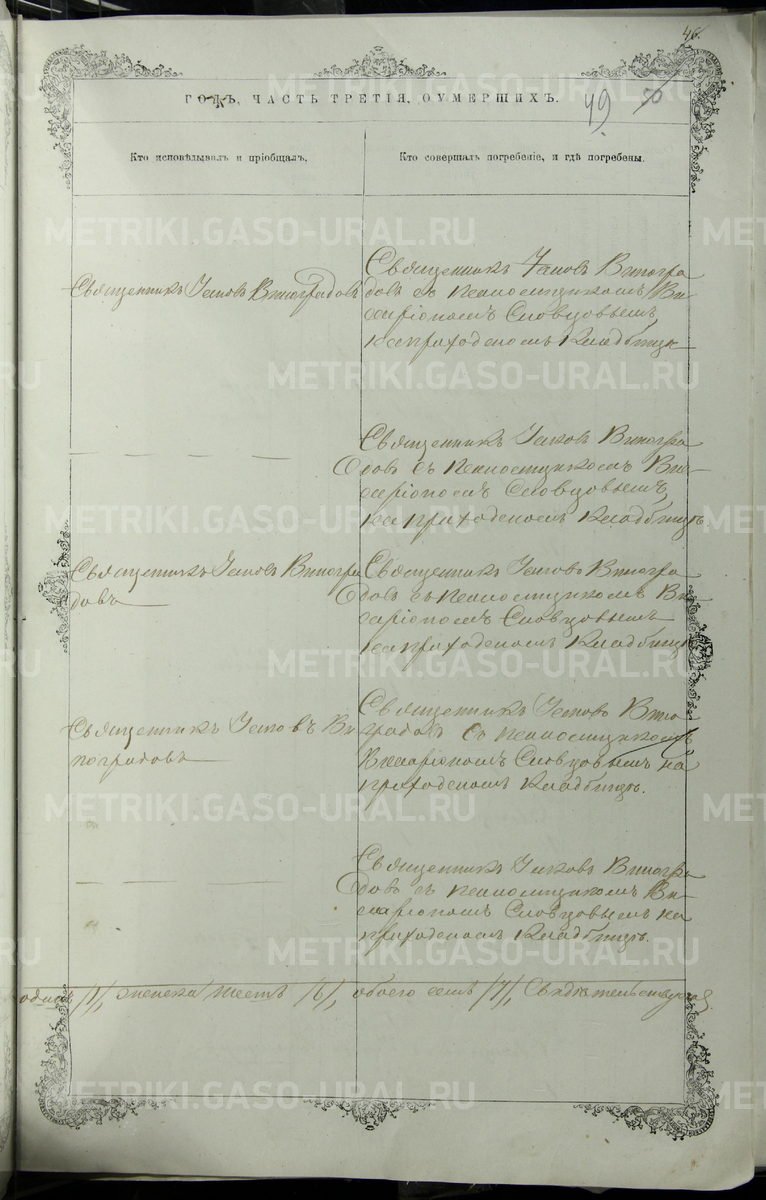 46.
ГОДЪ, ЧАСТЬ ТРЕТІЯ, ОУМЕРШИХЪ.
49
50
Кто исповѣдывалъ и пріобщалъ.
Кто совершалъ погребеніе, и гдѣ погребены.
Священникъ Іаковъ Виноградовъ
Священникъ Іаковъ Виногра
довъ съ псаломщикомъ Ви
саріономъ Словцовымъ
на приходскомъ кладбищѣ
Священникъ Іаковъ Виногра
довъ съ псаломщикомъ Вис
саріономъ Словцовымъ
на приходскомъ кладбищѣ
Священникъ Іаковъ Виногра
довъ
Священникъ Іаковъ Виногра
довъ съ псаломщикомъ Вис
саріономъ Словцовымъ
на приходскомъ кладбищѣ
Священникъ Іаковъ Ви
ноградовъ
Священникъ Іаковъ Вино
градовъ съ псаломщикомъ
Виссаріономъ Словцовымъ на
приходскомъ кладбищѣ.
Священникъ Іаковъ Виногра
довъ съ псаломщикомъ Ви
саріономъ Словцовымъ на
приходскомъ кладбищѣ.
одинъ /1/, женска шесть /6/, обоего семь /7/, Свидѣтельствую
METRIKI.GASO-URAL.RU